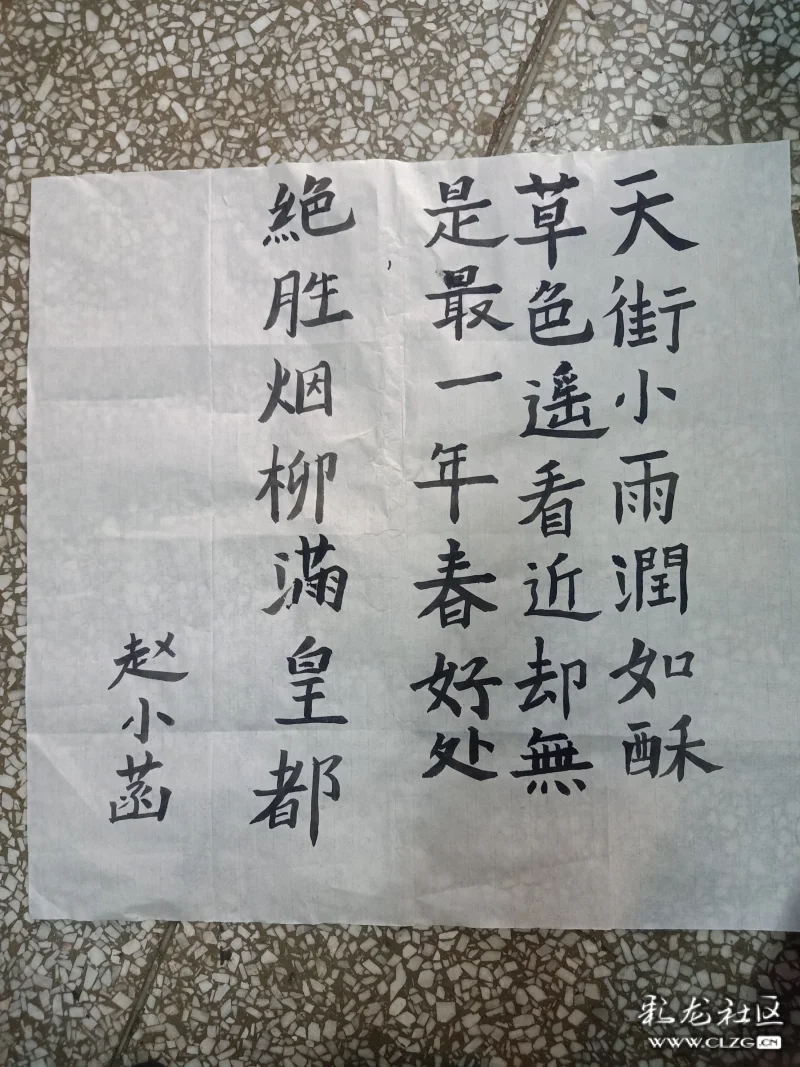 天街小雨潤如酥
草色遥看近却無
是最一年春好处
絶胜烟柳满皇都
赵小菡
彩龙社区
WWW.CLZG.CN